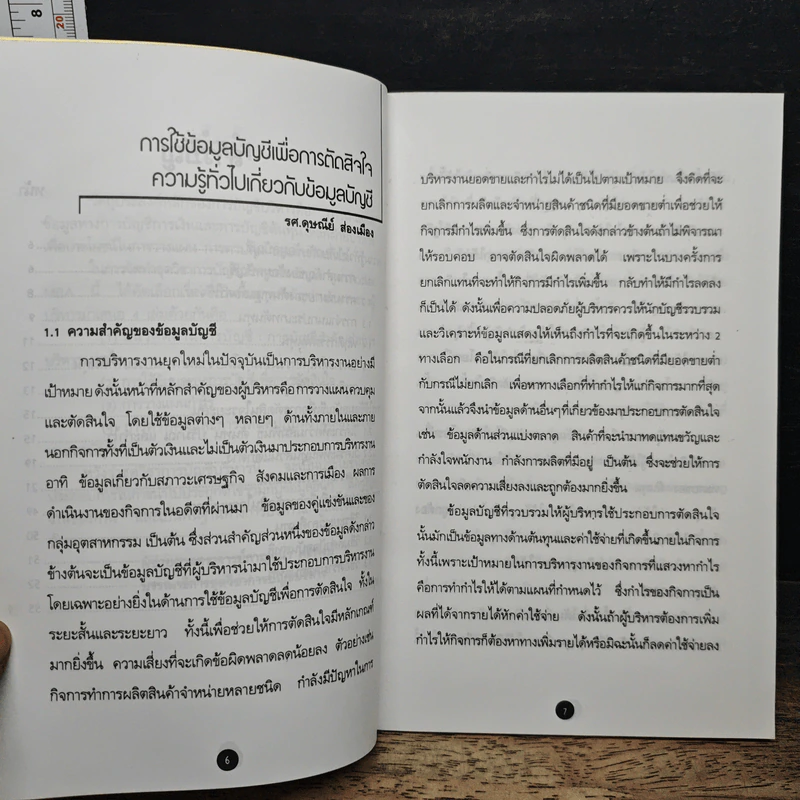 8
20
การใช้ข้อมูลบัญชีเพื่อการตัดสิจใจ
ความรู้ทั่วไปเกี่ยวกับข้อมูลบัญชี
รศ.ดุษณีย์ ส่องเมือง
1.1 ความสำคัญของข้อมูลบัญชี
การบริหารงานยุคใหม่ในปัจจุบันเป็นการบริหารงานอย่างมี
เป้าหมาย ดังนั้นหน้าที่หลักสำคัญของผู้บริหารคือ การวางแผน ควบคุม
และตัดสินใจ โดยใช้ข้อมูลต่างๆ หลายๆ ด้านทั้งภายในและภาย
นอกกิจการทั้งที่เป็นตัวเงินและไม่เป็นตัวเงินมาประกอบการบริหารงาน
อาทิ ข้อมูลเกี่ยวกับสภาวะเศรษฐกิจ สังคมและการเมือง ผลการ
ดำเนินงานของกิจการในอดีตที่ผ่านมา ข้อมูลของคู่แข่งขันและของ
กลุ่มอุตสาหกรรม เป็นต้น ซึ่งส่วนสำคัญส่วนหนึ่งของข้อมูลดังกล่าว
ข้างต้นจะเป็นข้อมูลบัญชีที่ผู้บริหารนำมาใช้ประกอบการบริหารงาน
โดยเฉพาะอย่างยิ่งในด้านการใช้ข้อมูลบัญชีเพื่อการตัดสินใจ ทั้งใน
ระยะสั้นและระยะยาว ทั้งนี้เพื่อช่วยให้การตัดสินใจมีหลักเกณฑ์
มากยิ่งขึ้น ความเสี่ยงที่จะเกิดข้อผิดพลาดลดน้อยลง ตัวอย่างเช่น
กิจการทำการผลิตสินค้าจำหน่ายหลายชนิด กำลังมีปัญหาในการ
6
บริหารงานยอดขายและกำไรไม่ได้เป็นไปตามเป้าหมาย จึงคิดที่จะ
ยกเลิกการผลิตและจำหน่ายสินค้าชนิดที่มียอดขายต่ำเพื่อช่วยให้
กิจการมีกำไรเพิ่มขึ้น ซึ่งการตัดสินใจดังกล่าวข้างต้นถ้าไม่พิจารณา
ให้รอบคอบ อาจตัดสินใจผิดพลาดได้ เพราะในบางครั้งการ
ยกเลิกแทนที่จะทำให้กิจการมีกำไรเพิ่มขึ้น กลับทำให้มีกำไรลดลง
ก็เป็นได้ ดังนั้นเพื่อความปลอดภัยผู้บริหารควรให้นักบัญชีรวบรวม
และวิเคราะห์ข้อมูลแสดงให้เห็นถึงกำไรที่จะเกิดขึ้นในระหว่าง 2
ทางเลือก คือในกรณีที่ยกเลิกการผลิตสินค้าชนิดที่มียอดขายต่ำ
กับกรณีไม่ยกเลิก เพื่อหาทางเลือกที่ทำกำไรให้แก่กิจการมากที่สุด
จากนั้นแล้วจึงนำข้อมูลด้านอื่นๆที่เกี่ยวข้องมาประกอบการตัดสินใจ
เช่น ข้อมูลด้านส่วนแบ่งตลาด สินค้าที่จะนำมาทดแทนขวัญและ
กำลังใจพนักงาน กำลังการผลิตที่มีอยู่ เป็นต้น ซึ่งจะช่วยให้การ
ตัดสินใจลดความเสี่ยงลงและถูกต้องมากยิ่งขึ้น
ข้อมูลบัญชีที่รวบรวมให้ผู้บริหารใช้ประกอบการตัดสินใจ
นั้นมักเป็นข้อมูลทางด้านต้นทุนและค่าใช้จ่ายที่เกิดขึ้นภายในกิจการ
ทั้งนี้เพราะเป้าหมายในการบริหารงานของกิจการที่แสวงหากำไร
คือการทำกำไรให้ได้ตามแผนที่กำหนดไว้ ซึ่งกำไรของกิจการเป็น
ผลที่ได้จากรายได้หักค่าใช้จ่าย ดังนั้นถ้าผู้บริหารต้องการเพิ่ม
กำไรให้กิจการก็ต้องหาทางเพิ่มรายได้หรือมิฉะนั้นก็ลดค่าใช้จ่ายลง
7